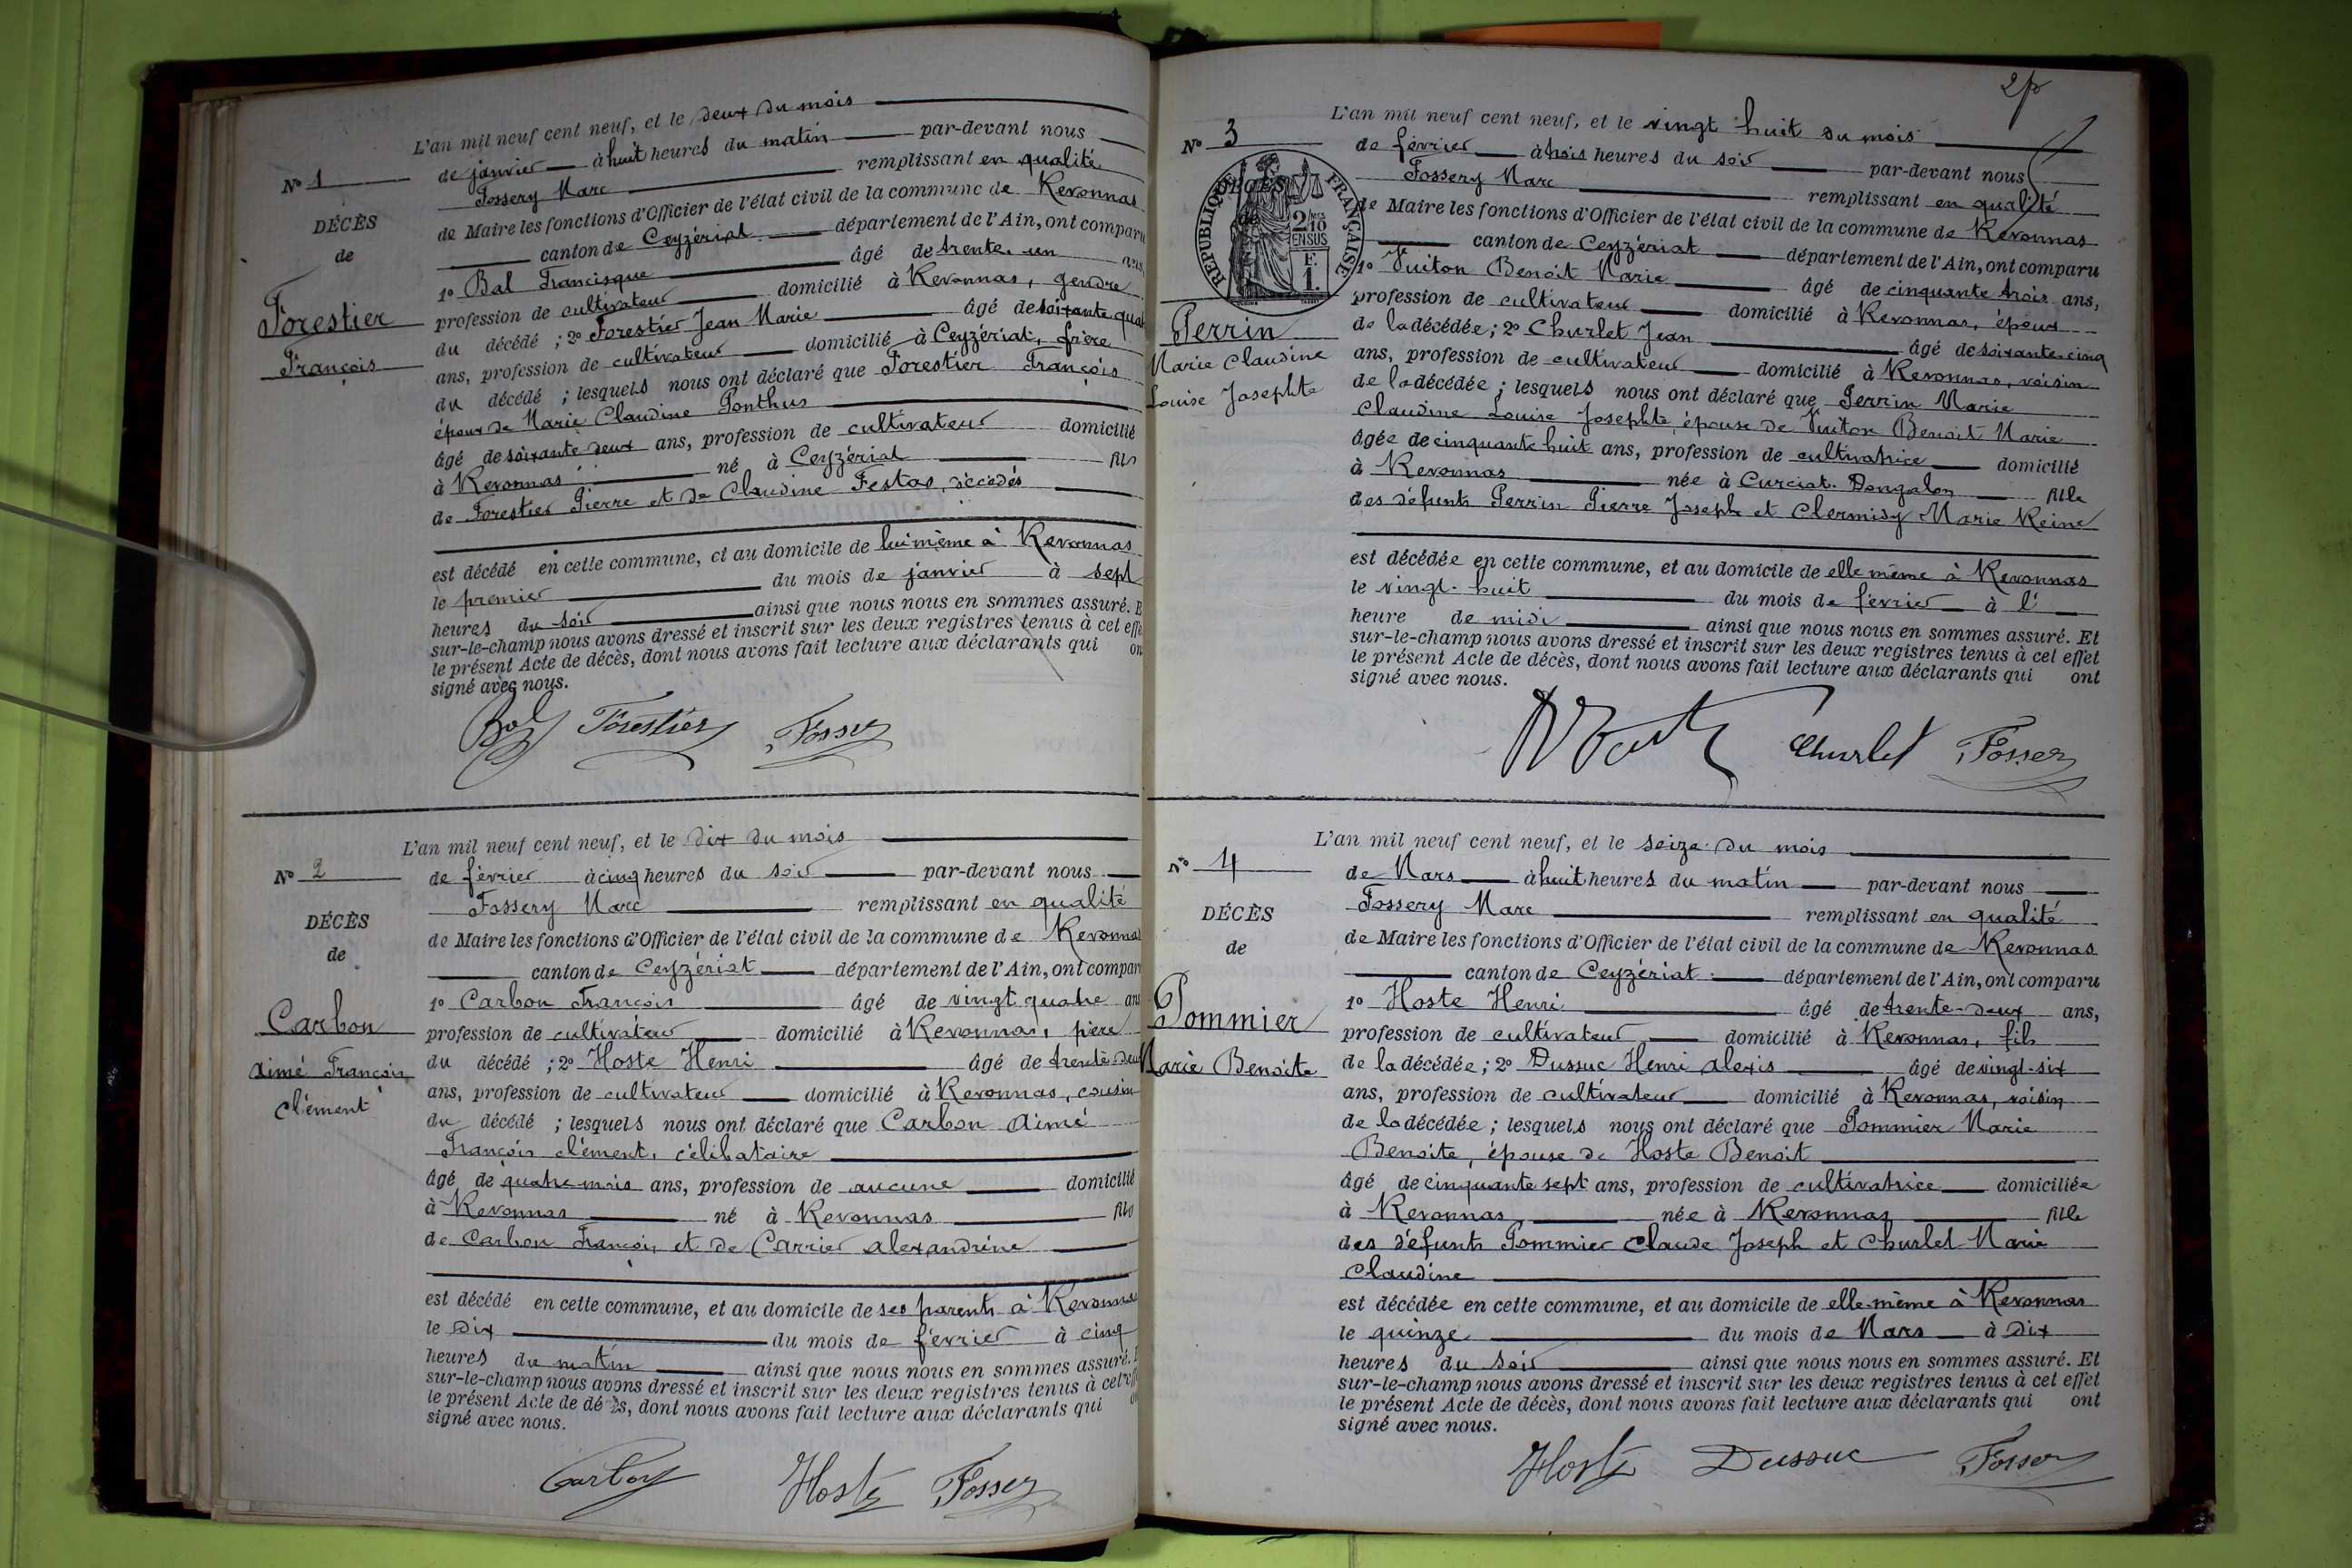 L'an mil neuf cent neuf, et le deux du mois
de janvier à huit heures du matin par-devant nous
Fossery Marc remplissant en qualité
de Maire les fonctions d'Officier de l'état civil de la commune de Revonnas
canton de Ceyzériat département de l'Ain, ont comparu
1º Bal Francisque âgé de trente un ans,
profession de cultivateur domicilié à Revonnas, gendre
du décédé ; 2º Forestier Jean Marie âgé de soixante quat
ans, profession de cultivateur domicilié à Ceyzériat, frère
du décédé ; lesquels nous ont déclaré que Forestier François
époux de Marie Claudine Ponthus
âgé de soixante deux ans, profession de cultivateur domicilié
à Revonnas né à Ceyzériat fils
de Forestier Pierre et de Claudine Festas, décédés
est décédé en cette commune, et au domicile de lui même à Revonnas
le premier du mois de janvier à sept
heures du soir ainsi que nous nous en sommes assuré. E
sur-le-champ nous avons dressé et inscrit sur les deux registres tenus à cet effe
le présent Acte de décès, dont nous avons fait lecture aux déclarants qui on
signé avec nous.
Bal Forestier Fossery
Nº 1
DÉCÈS
de
Forestier
François
L'an mil neuf cent neuf, et le dix du mois
de février à cinq heures du soir par-devant nous
Fossery Marc remplissant en qualité
de Maire les fonctions d'Officier de l'état civil de la commune de Revonna
canton de Ceyzériat département de l'Ain, ont compar
1º Carbon François âgé de vingt quatre ans
profession de cultivateur domicilié à Revonnas, père
du décédé ; 2º Hoste Henri âgé de trente deux
ans, profession de cultivateur domicilié à Revonnas, cousin
du décédé ; lesquels nous ont déclaré que Carbon Aimé
François clément, célibataire
âgé de quatre mois ans, profession de aucune domicilié
à Revonnas né à Revonnas fils
de Carbon François et de Carrier Alexandrine
est décédé en cette commune, et au domicile de ses parents à Revonnas
le dix du mois de février à cinq
heures du matin ainsi que nous nous en sommes assuré. E
sur-le-champ nous avons dressé et inscrit sur les deux registres tenus à cet eff
le présent Acte de décès, dont nous avons fait lecture aux déclarants qui o
signé avec nous.
Carbon Hoste Fossery
Nº 2
DÉCÈS
de
Carbon
Aimé François
clément
2
L'an mil neuf cent neuf, et le vingt huit du mois
de février à trois heures du soir par-devant nous
Fossery Marc remplissant en qualité
de Maire les fonctions d'Officier de l'état civil de la commune de Revonnas
canton de Ceyzériat département de l'Ain, ont comparu
1º Vuiton Benoit Marie âgé de cinquante trois ans,
profession de cultivateur domicilié à Revonnas, époux
de la décédée ; 2º Churlet Jean âgé de soixante cinq
ans, profession de cultivateur domicilié à Revonnas, voisin
de la décédée ; lesquels nous ont déclaré que Perrin Marie
Claudine Louise Josephte, épouse de Vuiton Benoit Marie
âgée de cinquante huit ans, profession de cultivatrice domicilié
à Revonnas née à Curciat-Dongalon fille
des défunts Perrin Pierre Joseph et Clermidy Marie Reine
est décédée en cette commune, et au domicile de elle même à Revonnas
le vingt-huit du mois de février à l'
heure de midi ainsi que nous nous en sommes assuré. Et
sur-le-champ nous avons dressé et inscrit sur les deux registres tenus à cet effet
le présent Acte de décès, dont nous avons fait lecture aux déclarants qui ont
signé avec nous.
Churlet Fossery
Nº 3
DÉCÈS
RÉPUBLIQUE FRANÇAISE
2/10
EN SUS
F.
1.
Perrin
Marie Claudine
Louise Josephte
L'an mil neuf cent neuf, et le seize du mois
de Mars à huit heures du matin par-devant nous
Fossery Marc remplissant en qualité
de Maire les fonctions d'Officier de l'état civil de la commune de Revonnas
canton de Ceyzériat département de l'Ain, ont comparu
1º Hoste Henri âgé de trente-deux ans,
profession de cultivateur domicilié à Revonnas, fils
de la décédée ; 2º Dussuc Henri Alexis âgé de vingt-six
ans, profession de cultivateur domicilié à Revonnas, voisin
de la décédée ; lesquels nous ont déclaré que Pommier Marie
Benoite, épouse de Hoste Benoit
âgé de cinquante sept ans, profession de cultivatrice domiciliée
à Revonnas née à Revonnas fille
des défunts Pommier Claude Joseph et Churlet Marie
Claudine
est décédée en cette commune, et au domicile de elle-même à Revonnas
le quinze du mois de Mars à dix
heures du soir ainsi que nous nous en sommes assuré. Et
sur-le-champ nous avons dressé et inscrit sur les deux registres tenus à cet effet
le présent Acte de décès, dont nous avons fait lecture aux déclarants qui ont
signé avec nous.
Hoste Dussuc Fossery
Nº 4
DÉCÈS
de
Pommier
Marie Benoite